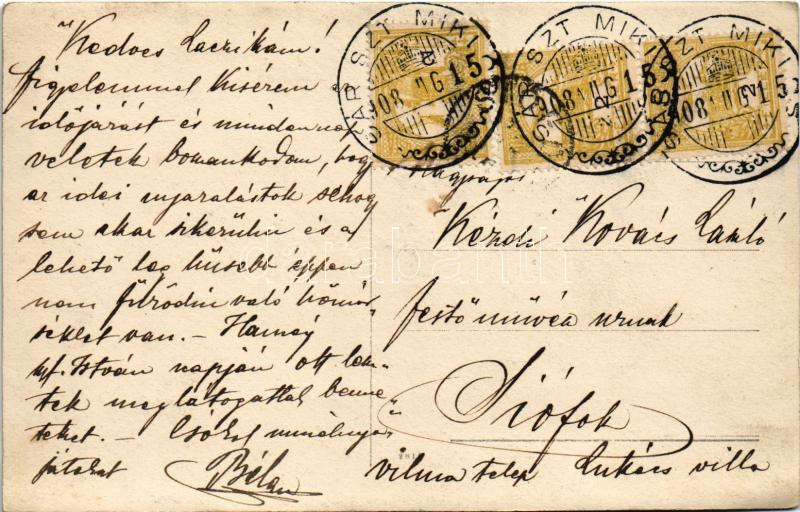 Kedves Laczikám!
figyelemmel kisérem az
időjárást és minden nap
veletek bánkodom, hogy
az idei nyaralástok sehogy
sem akar sikerülni és a
lehető leg hüsebb éppen
nem fürödni való hőmér
séklet van. –
István napján ott leszek
tek meglátogatlak benne
teket. – Csókol mindnyá
jatokat Béla
SÁR SZT MIKLÓS
908 AUG 15
SÁR SZT MIKLÓS
908 AUG 15
SÁR SZT MIKLÓS
908 AUG 15
Nagyságos
Kézdi Kovács László
festőművész urnak
Siófok
Vilma telep Lukács villa
darabanth